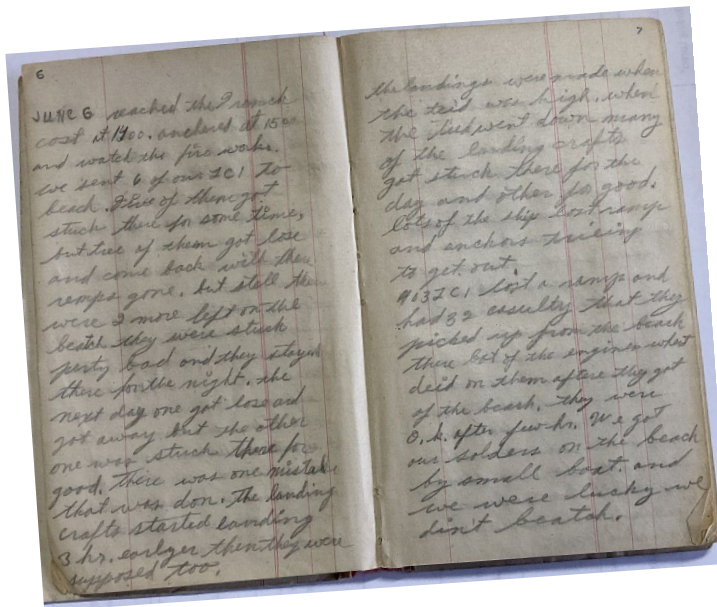 6
JUNE 6 reached the French
cost at 1400. anchored at 150
and watch the fire works.
we sent 6 of our LCI to
beach. Five of them got
stuck there for some time,
but tree of them got lose
and come back with their
remps gone. but stell ther
were 2 more left on the
beatch they were stuck
perty bad and they stayed
there for the night. the
next day one got lose and
got away but the other
one was stuck there for
good. There was one mistake
that was don. the landing
crafts started landing
3 hr. earlyer then they were
supposed too.
7
the landings were made when
the tied was high. when
the tied went down meany
of the landing crafts
got stuck there for the
day and other for good.
lots of the ship lost ramp
and anchors
to get out.
LCI lost a ramp and
had 32 casulty that they
picked up from the beach
there bot of the engines went
deid on them aftere they got
of the beach. they were
O.k. after few hr. We got
our solders on the beach
by small boat. and
we were lucky we
din't beatch.